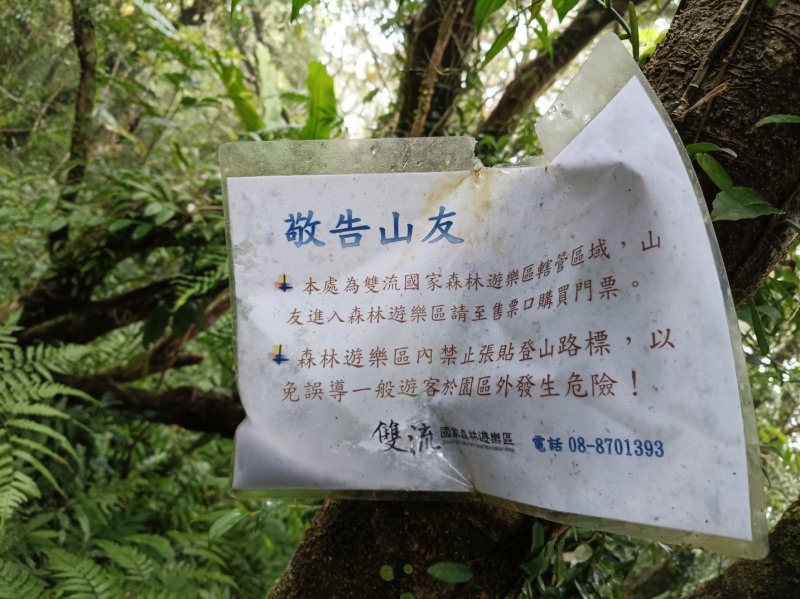 敬告山友
本處為雙流國家森林遊樂區轄管區域，山
友進入森林遊樂區請至售票口購買門票。
森林遊樂區內禁止張貼登山路標，以
免誤導一般遊客於園區外發生危險！
雙流 國家森林遊樂區 電話 08-8701393